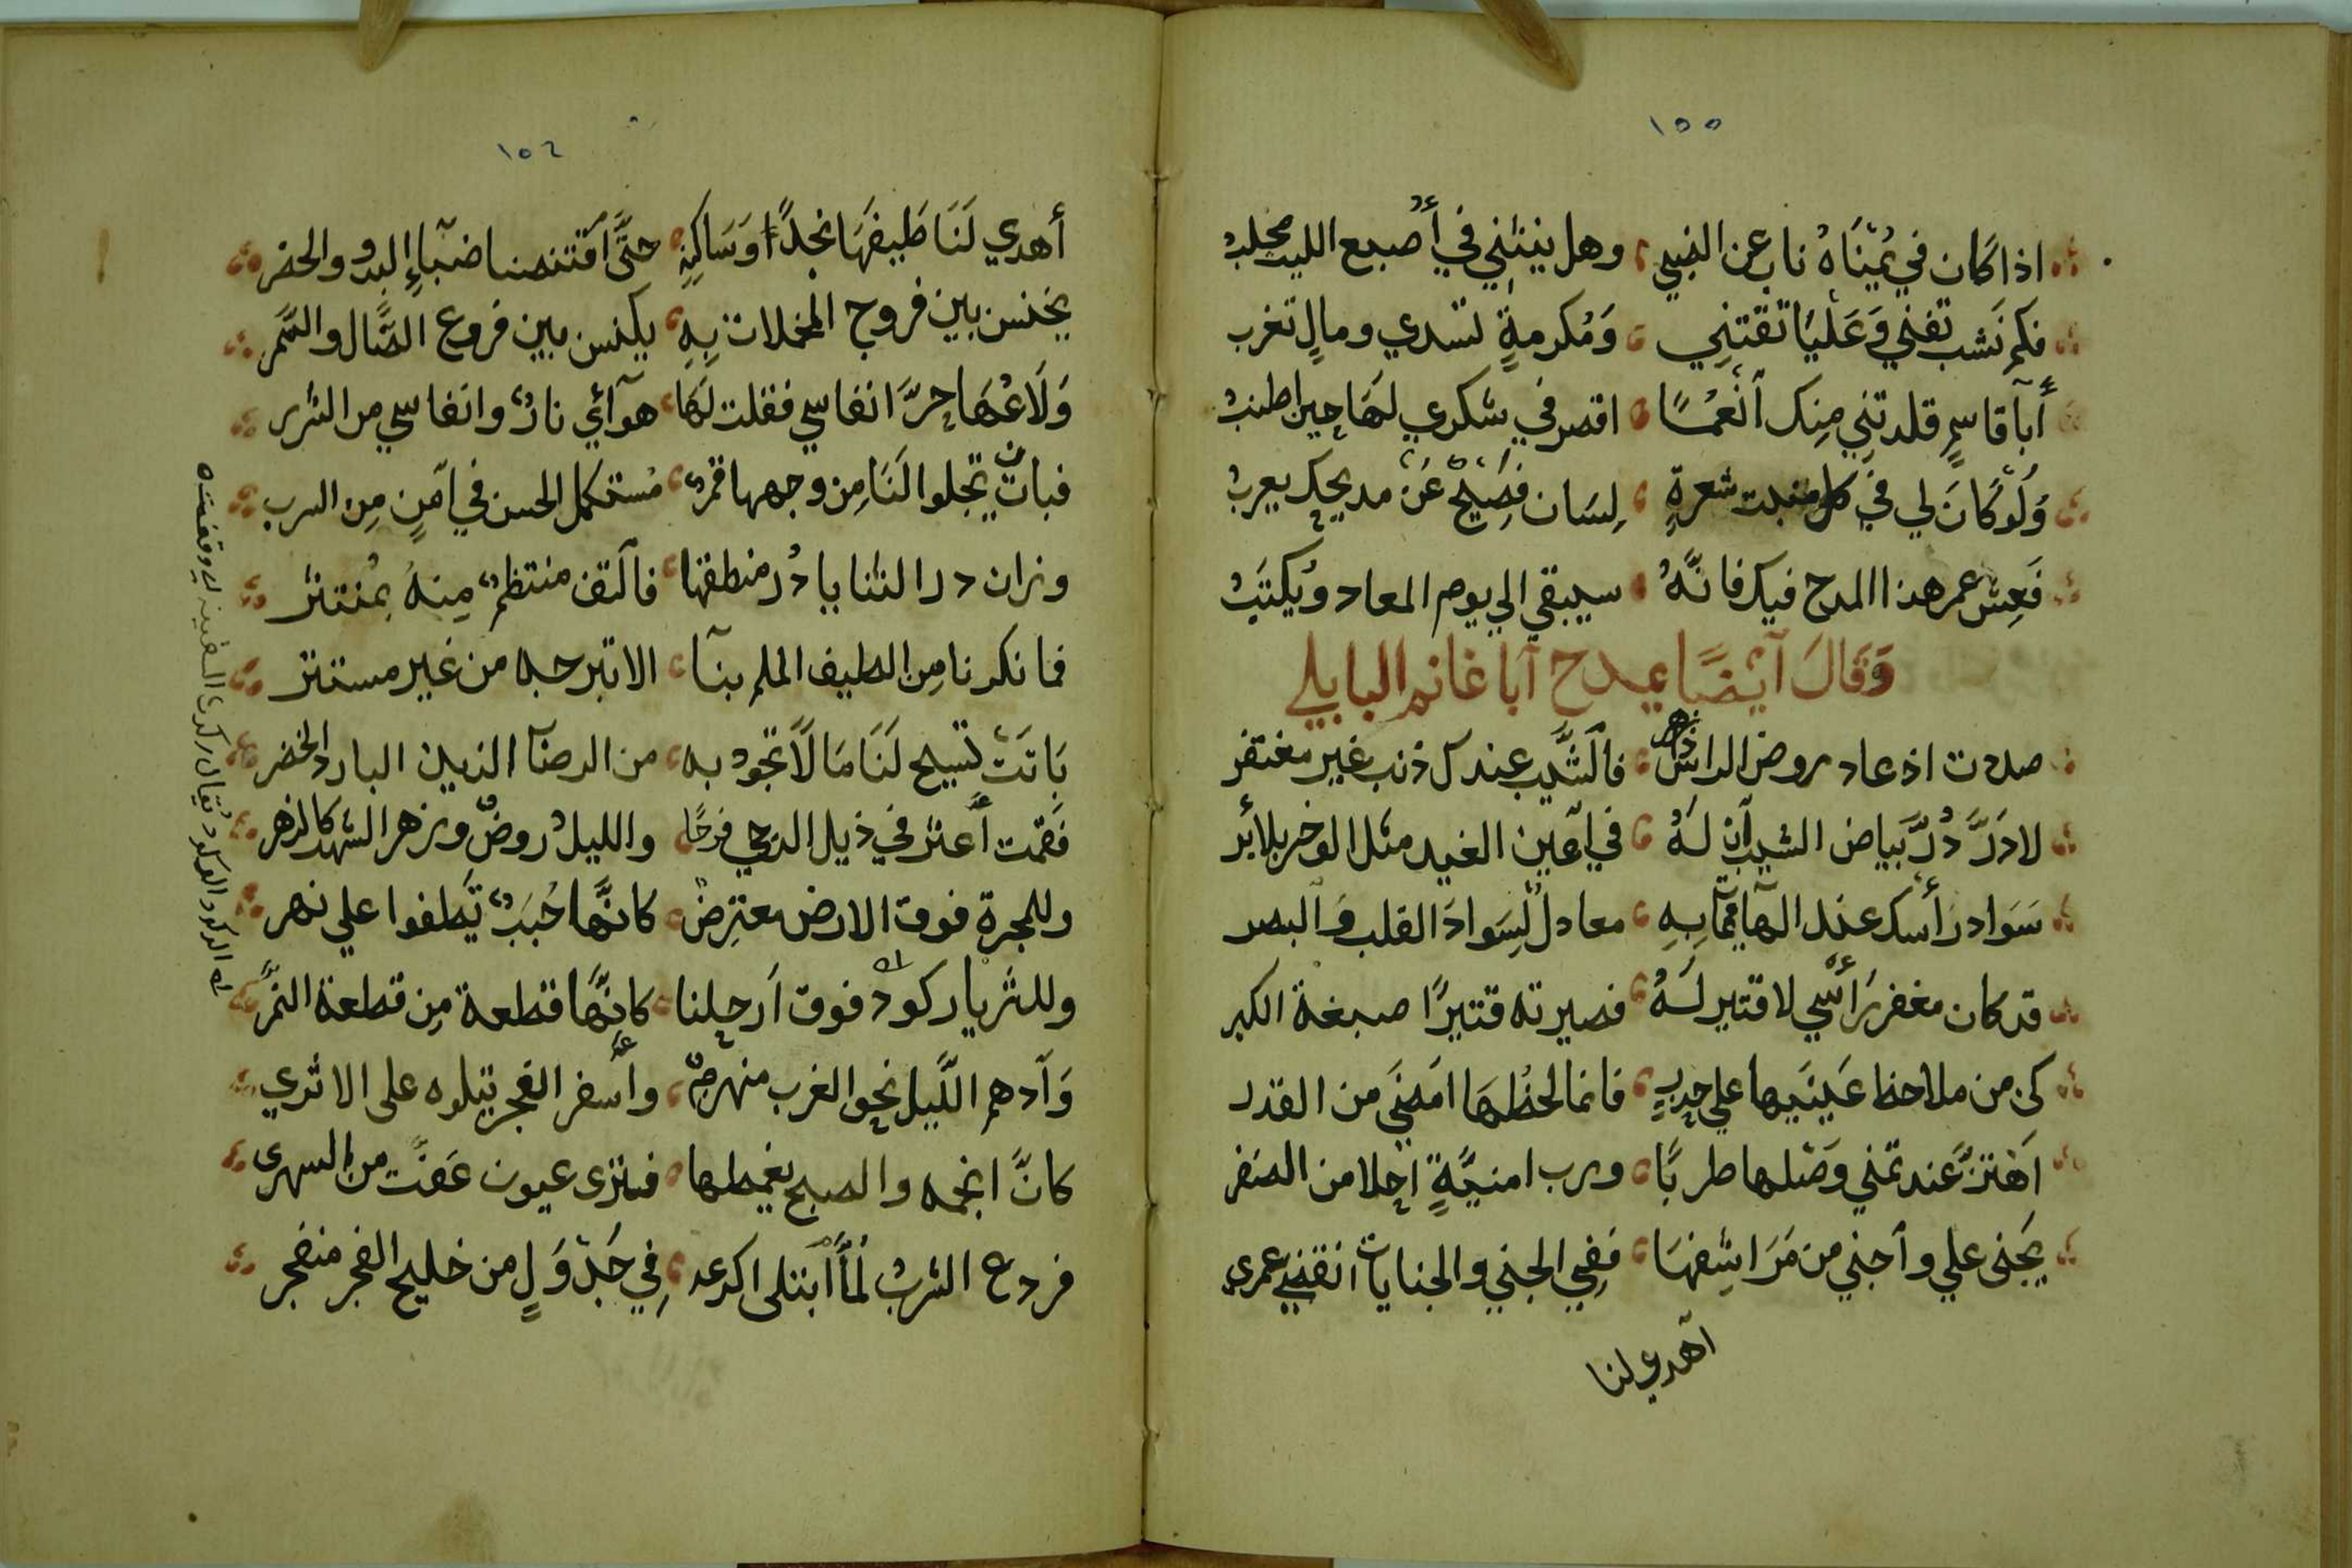 ١٥٥
اذا كان في يُمْنَاهُ ناب عن الضبي وهل ينثني في أصبع الليث مخلبُ
فكم نَشب تفني وَعَلْيَا تقتني وَمُكرمةٍ تسدي ومالٍ تغرب
أبآ قاسمٍ قلدتني مِنك آنْعُمًا اقصر في شكري لهَا حين اطنبُ
وَلَوْ كَانَ لي في كل منبت شعرةٍ لِسَان فصَيْحٌ عَنْ مديحك يعربُ
فَعِش عمر هذا المدح فيك فانَّهُ سيبقي الي يوم المعاد وَيُكتَبُ
وَقَالَ آيْضًا يمدح آبا غانم البابلي
صدت اذ عاد روض الراس زهر فالشَّيب عندك ذنب غير مغتفر
لا دَرَّ دُرُّ بَياض الشيب آن لَهُ في آعين الغيد مثل الوخز بلابر
سَوَاد رَأسك عند الهآئمآ بِهِ معادلٌ لِسَوادَ القلب وَالبصر
قد كان مغفر رَأسي لا قتير لَهُ فصيرته قتيرًا صبغة الكبر
كن من ملاحظ عَينَيها علي حِدبٍ فانما لحظُهَا امَضَي من القدر
آهْتزُّ عند تمني وَصْلها طربًا ورب امنيَّةٍ احلا من الضفر
يَجْنى علي وآجني من مَرَاشِفهَا فَفِي الجني والجنايات انقضي عمرى
آهدي لنا
١٥٦
أهدي لَنَا طَيفهَا نجدًا وَسَاكِنهِ حتَّى آقتنصنا ضبآءِ البدو والحضر
يخنس بين فروج المخلات بِهِ يكنس بين فروع الضَّال والسَّمر
وَلَاعُهَا حرَّ انفاسي فقلت لَهَا هوآئي نارٌ وانفاسي من الشرر
فباتت تجلوا لَنَا مِن وجهها قمرٌ مُستكمل الحسن في آمَنٍ مِن السرب
وزان در الثنايا دُر منطقها فآلتف منتظمٌ مِنهُ بمُنتثر
فما نكرنا مِن الطيف الملم بنآ الا تبرحه من غير مستتر
بَاتَتْ تبيح لَنَا مَا لَا تجود به من الرضآ الذيين البارد الخضر
فَقمت أعثر في ذيل الدَجي فرحًا والليلُ روضٌ وزهر الشهب كالزهر
وللمجرة فوق الارض معترِضٌ كانَّها حُبَبٌ تَطفوا علي نهر
وللثريا ركودٌ فوق آرحلنا كانَّها قطعة مِن قطعة النمر
وَآدهم اللَّيل نحو الغرب منهزمٌ وأسفر الفجر يتلوه على الاثري
كانَّ انجمه والصبح يغمطها فنزى عيون عَفَت من السهرى
فردع الشربُ لمَّا ابتلى اكرعه فِي جَدْوَلٍ من خليج الفجر منفجر